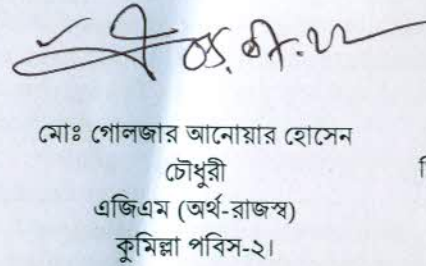 মোঃ গোলজার আনোয়ার হোসেন
চৌধুরী
এজিএম (অর্থ-রাজস্ব)
কুমিল্লা পবিস-২।